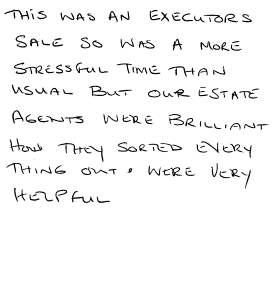 THIS WAS AN EXECUTORS
SALE SO WAS A MORE
STRESSFUL TIME THAN
USUAL BUT OUR ESTATE
AGENTS WERE BRILLIANT
HOW THEY SORTED EVERY
THING OUT & WERE VERY
HELPFUL